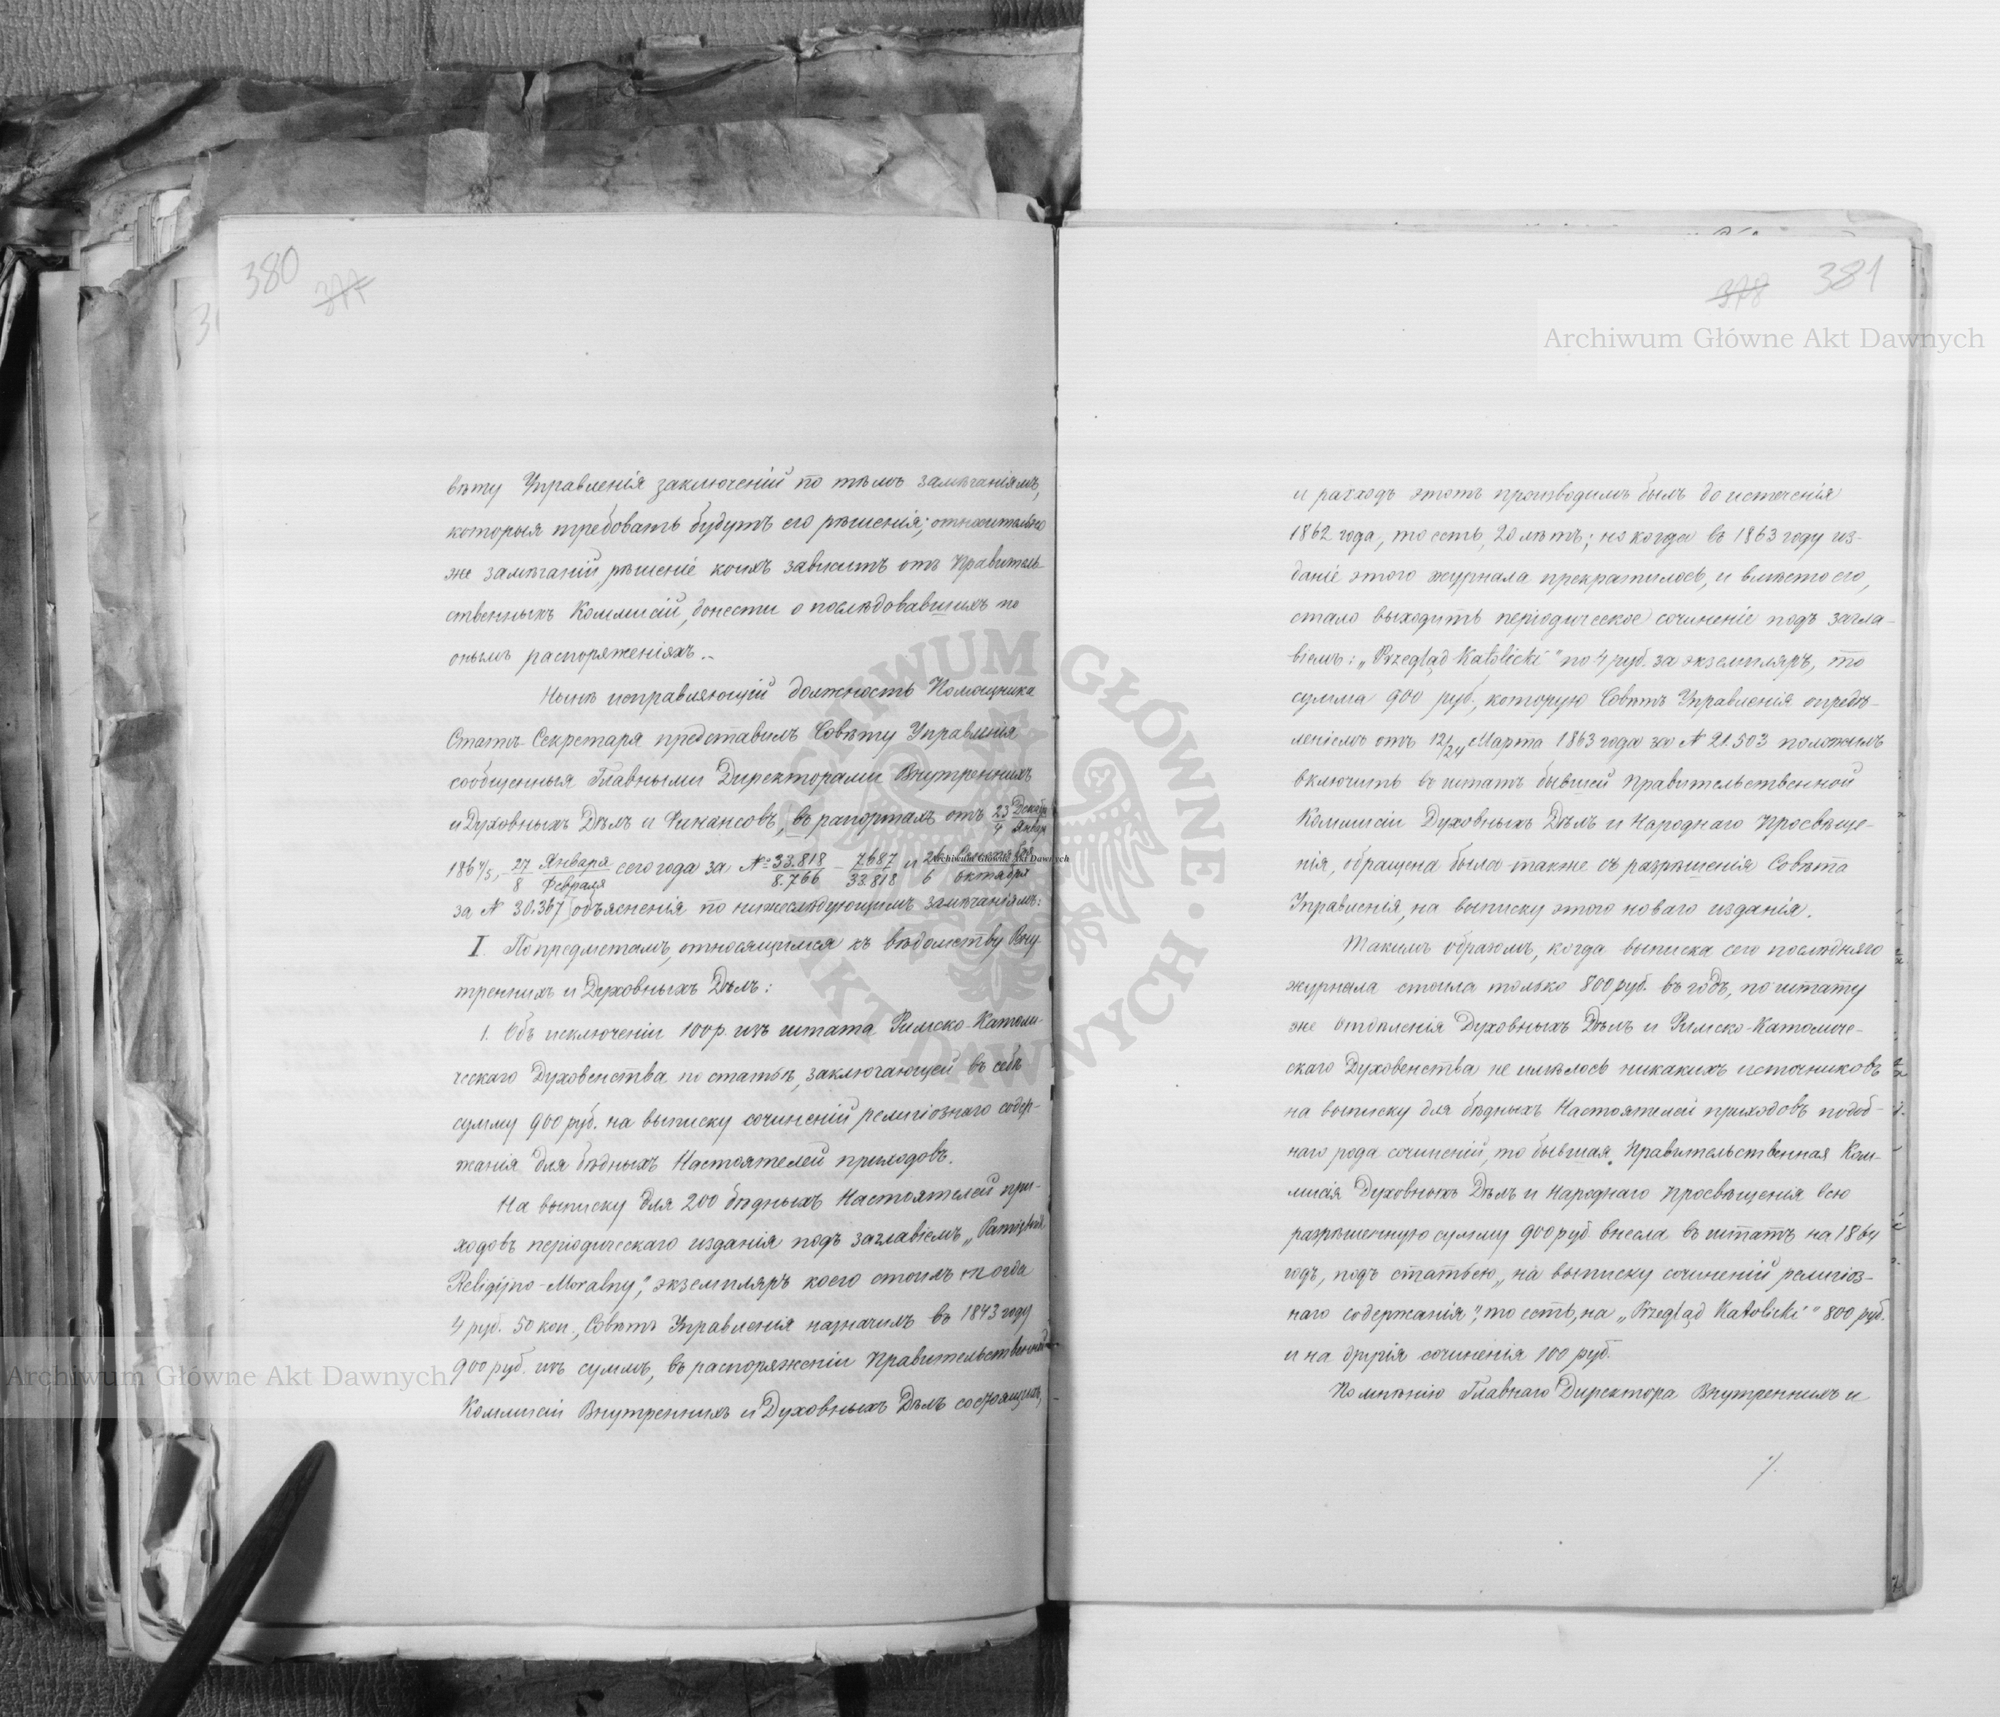 380
377
вѣту Управленія заключеній по тѣмъ замѣчаніямъ,
которыя требовать будутъ его рѣшенія; относительно
же замѣчаній, рѣшеніе коихъ зависитъ отъ Правитель-
ственныхъ Коммисій, донести о послѣдовавшихъ по
онымъ распоряженіяхъ.-
Нынѣ исправляющій должность Помощника
Статсъ-Секретаря представилъ Совѣту Управленія
сообщенныя Главными Директорами Внутреннихъ
и Духовныхъ Дѣлъ и Финансовъ, въ рапортахъ отъ 23 Декабря / 4 Января
1864/5, - 27 Января / 8 Февраля сего года за №№ 33.818 / 8.766 - 7687 / 33.818 и 26 / 6 Октября
за № 30.367 объясненія по нижеслѣдующимъ замѣчаніямъ:
I. По предметамъ, относящимся къ вѣдомству Вну-
треннихъ и Духовныхъ Дѣлъ:
1. Объ исключеніи 100 р. изъ штата Римско-Католи-
ческаго Духовенства по статьѣ, заключающей въ себѣ
сумму 900 руб. на выписку сочиненій религіознаго содер-
жанія для бѣдныхъ Настоятелей приходовъ.
На выписку для 200 бѣдныхъ Настоятелей при-
ходовъ періодическаго изданія подъ заглавіемъ „Pamiętnik
Religijno-Moralny", экземпляръ коего стоилъ тогда
4 руб. 50 коп., Совѣтъ Управленія назначилъ въ 1843 году
900 руб. изъ суммъ, въ распоряженіи Правительственной
Коммисіи Внутреннихъ и Духовныхъ Дѣлъ состоящихъ,
378
381
и расходъ этотъ производимъ былъ до истеченія
1862 года, то есть, 20 лѣтъ; но когда въ 1863 году из-
даніе этого журнала прекратилось, и вмѣсто его,
стало выходить періодическое сочиненіе подъ загла-
віемъ: „Przegląd Katolicki" по 4 руб. за экземпляръ, то
сумма 900 руб., которую Совѣтъ Управленія опредѣ-
леніемъ отъ 12/24 Марта 1863 года за № 21.503 положилъ
включить въ штатъ бывшей Правительственной
Коммисіи Духовныхъ Дѣлъ и Народнаго Просвѣще-
нія, обращена была также съ разрѣшенія Совѣта
Управленія, на выписку этого новаго изданія.
Такимъ образомъ, когда выписка сего послѣдняго
журнала стоила только 800 руб. въ годъ, по штату
же Отдѣленія Духовныхъ Дѣлъ и Римско-Католиче-
скаго Духовенства не имѣлось никакихъ источниковъ
на выписку для бѣдныхъ Настоятелей приходовъ подоб-
наго рода сочиненій, то бывшая Правительственная Ком-
мисія Духовныхъ Дѣлъ и Народнаго Просвѣщенія всю
разрѣшенную сумму 900 руб. внесла въ штатъ на 1864
годъ, подъ статьею „на выписку сочиненій религіоз-
наго содержанія", то есть, на „Przegląd Katolicki" 800 руб.
и на другія сочиненія 100 руб.
По мнѣнію Главнаго Директора Внутреннихъ и
Archiwum Główne Akt Dawnych
Archiwum Główne Akt Dawnych
Archiwum Główne Akt Dawnych
ARCHIWUM GŁÓWNE · AKT DAWNYCH ·